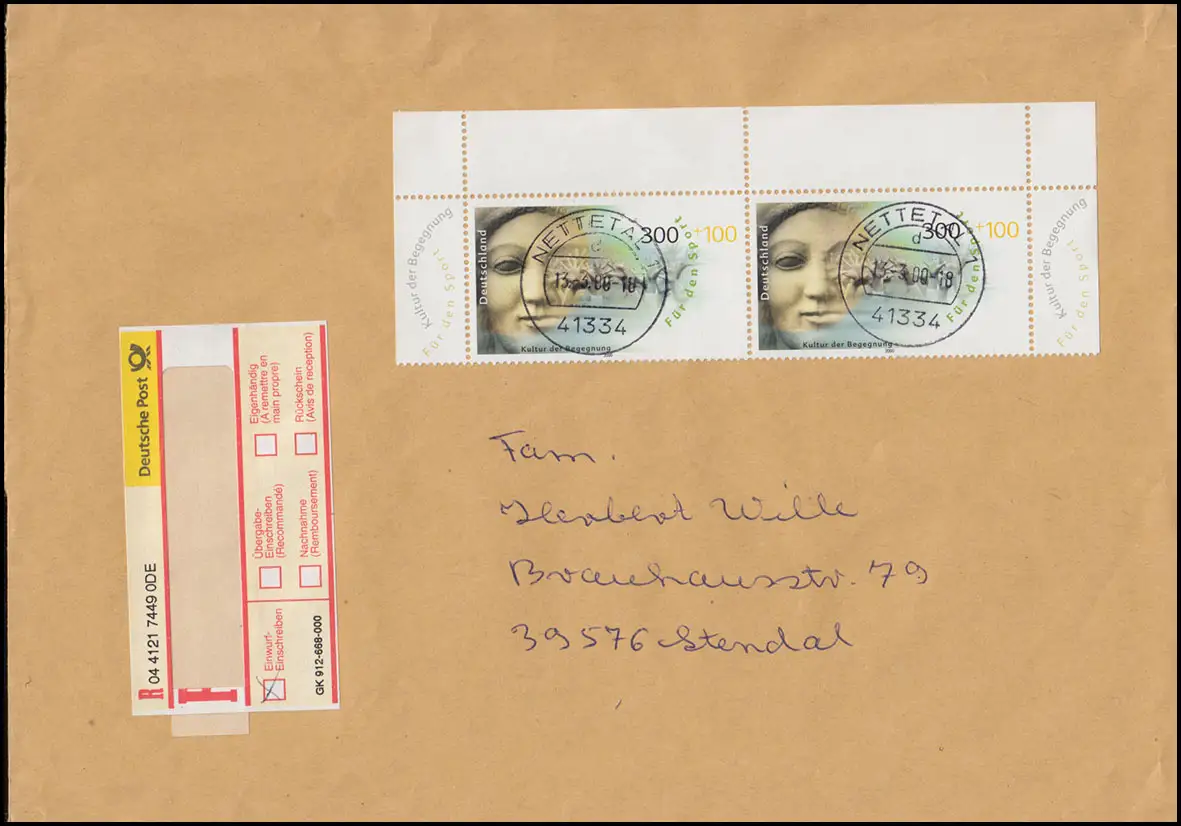 Kultur der Begegnung
Für den Sport
Deutschland
300 +100
Für den Sport
Kultur der Begegnung
2000
NETTETAL 1
d
13.-3.00-18
41334
Deutschland
300 +100
Für den Sport
Kultur der Begegnung
2000
NETTETAL 1
d
13.-3.00-18
41334
Kultur der Begegnung
Für den Sport
Deutsche Post
R 04 4121 7449 0DE
Eigenhändig
(A remettre en
main propre)
Rückschein
(Avis de reception)
Übergabe-
Einschreiben
(Recommandé)
Nachnahme
(Remboursement)
Einwurf-
Einschreiben
GK 912-668-000
Fam.
Herbert Wille
Brauhausstr. 79
39576 Stendal